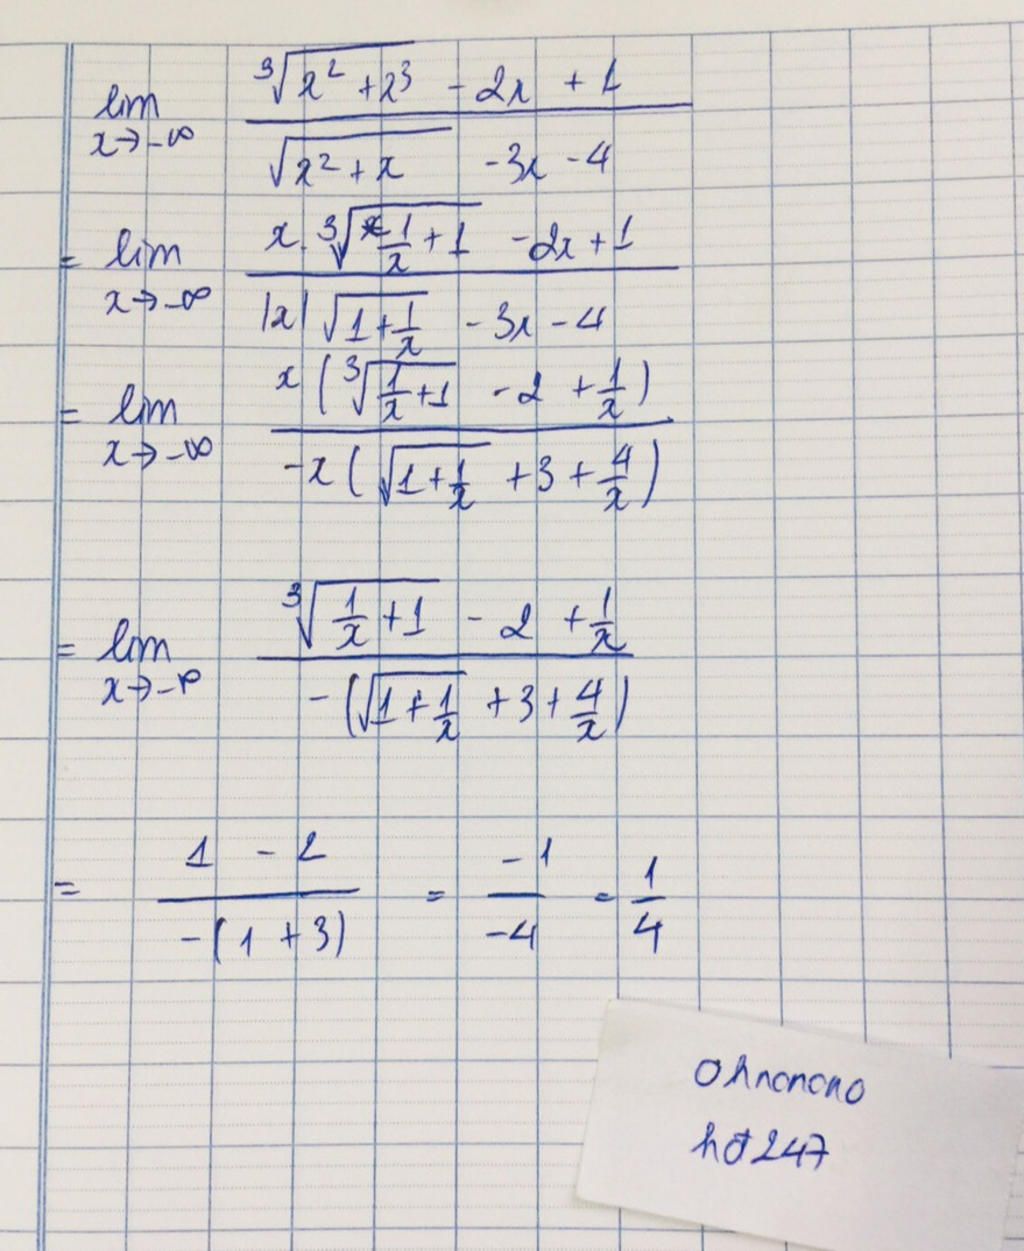 lim x→-∞ (∛(x² + x³) - 2x + 1) / (√(x² + x) - 3x - 4)
= lim x→-∞ (x.∛(1/x + 1) - 2x + 1) / (|x| √(1 + 1/x) - 3x - 4)
= lim x→-∞ x(∛(1/x + 1) - 2 + 1/x) / -x(√(1 + 1/x) + 3 + 4/x)
= lim x→-∞ (∛(1/x + 1) - 2 + 1/x) / -(√(1 + 1/x) + 3 + 4/x)
= (1 - 2) / -(1 + 3) = -1/-4 = 1/4
Ohnonono